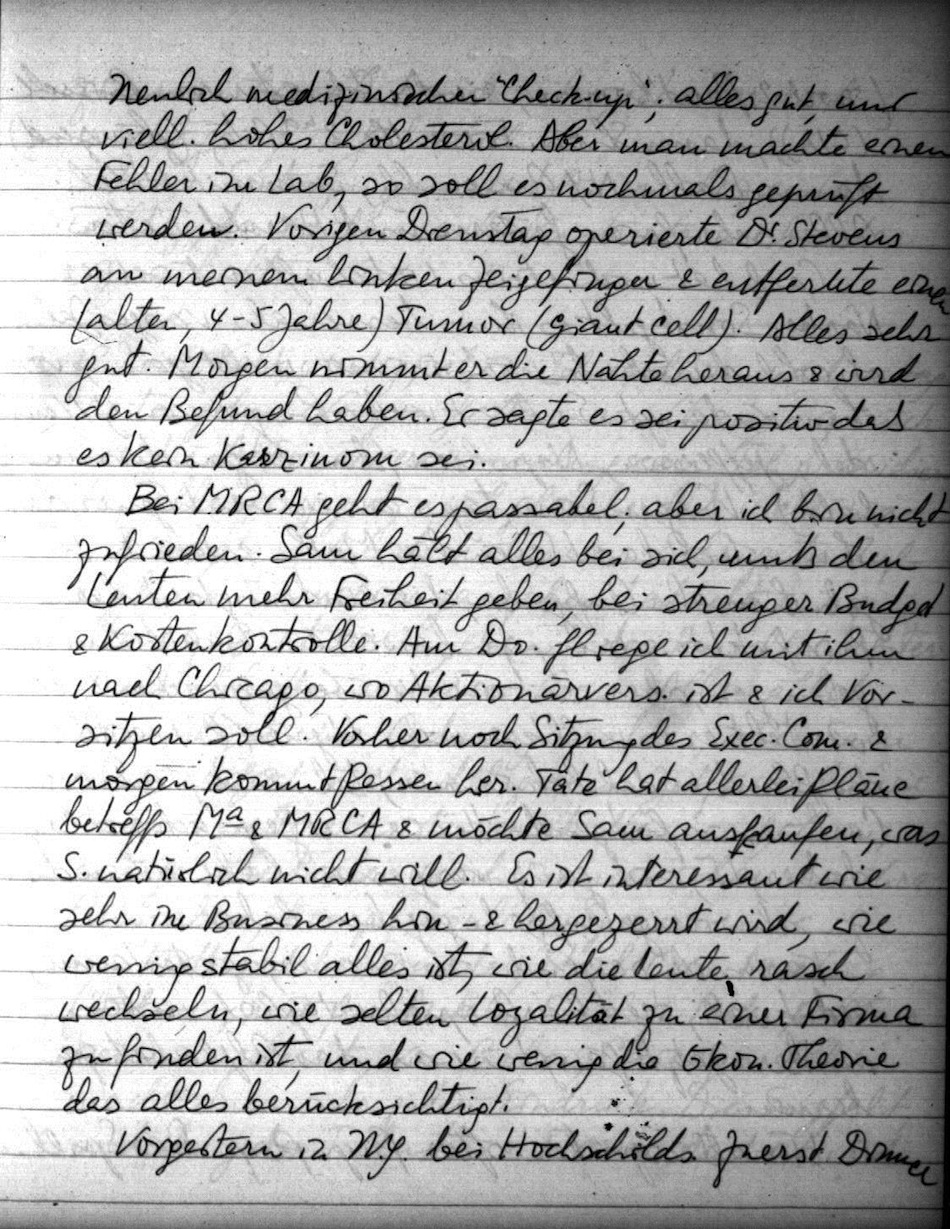 Neulich medizinischer "Check-up"; alles gut, nur
viell. hohes Cholesterol. Aber man machte einen
Fehler im Lab, so soll es nochmals geprüft
werden. Vorigen Dienstag operierte Dr. Stevens
an meinem linken Zeigefinger & entfernte einen
(alten, 4-5 Jahre) Tumor (giant cell). Alles sehr
gut. Morgen nimmt er die Nähte heraus & wird
den Befund haben. Er sagte es sei positiv daß
es kein Karzinom sei.
Bei MRCA geht es passabel, aber ich bin nicht
zufrieden. Sam hält alles bei sich, muß den
Leuten mehr Freiheit geben, bei strenger Budget
& Kostenkontrolle. Am Do. fliege ich mit ihm
nach Chicago, wo Aktionärvers. ist & ich Vor-
sitzen soll. Vorher noch Sitzung des Exec. Com. &
morgen kommt her. Tatz hat allerlei Pläne
betreffs Ma & MRCA & möchte Sam auskaufen, was
S. natürlich nicht will. Es ist interessant wie
sehr im Business hin- & hergezerrt wird, wie
wenig stabil alles ist, wie die Leute rasch
wechseln, wie selten Loyalität zu einer Firma
zu finden ist, und wie wenig die ökon. Theorie
das alles berücksichtigt.
Vorgestern in NY. bei Hochschilds. Zuerst Dinner